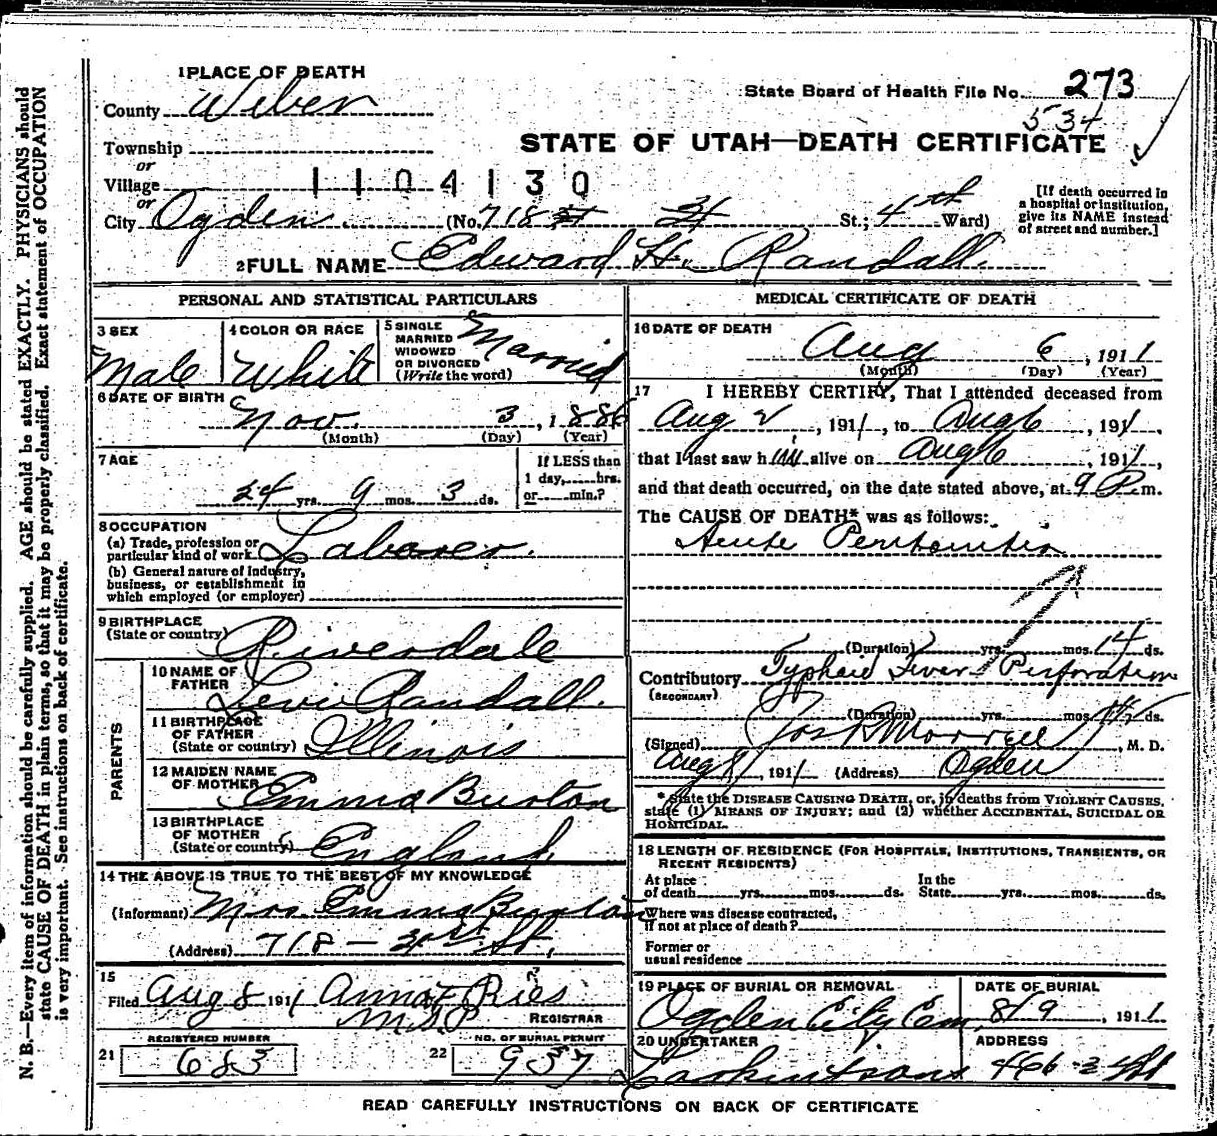 N. B.—Every item of information should be carefully supplied. AGE should be stated EXACTLY. PHYSICIANS should
state CAUSE OF DEATH in plain terms, so that it may be properly classified. Exact statement of OCCUPATION
is very important. See instructions on back of certificate.
1 PLACE OF DEATH
County Weber
State Board of Health File No. 273
534
Township
STATE OF UTAH—DEATH CERTIFICATE
or
Village
1104130
or
City Ogden (No. 718 31 St.; 4th Ward)
[If death occurred in
a hospital or institution,
give its NAME instead
of street and number.]
2 FULL NAME Edward H. Randall
PERSONAL AND STATISTICAL PARTICULARS
3 SEX
Male
4 COLOR OR RACE
White
5 SINGLE
MARRIED
WIDOWED
OR DIVORCED
(Write the word)
Married
6 DATE OF BIRTH
Nov. 3, 1886
(Month) (Day) (Year)
7 AGE
24 yrs. 9 mos. 3 ds.
If LESS than
1 day, hrs.
or min.?
8 OCCUPATION
(a) Trade, profession or
particular kind of work Laborer.
(b) General nature of industry,
business, or establishment in
which employed (or employer)
9 BIRTHPLACE
(State or country) Riverdale
PARENTS
10 NAME OF
FATHER Levi Randall.
11 BIRTHPLACE
OF FATHER
(State or country) Illinois
12 MAIDEN NAME
OF MOTHER Emma Burton
13 BIRTHPLACE
OF MOTHER
(State or country) England.
14 THE ABOVE IS TRUE TO THE BEST OF MY KNOWLEDGE
(Informant) Mrs. Emma Burton
(Address) 718 - 31st St.
15
Filed Aug 8 1911 Anna F. Ries
REGISTRAR
REGISTERED NUMBER
21 683
NO. OF BURIAL PERMIT
22 937
MEDICAL CERTIFICATE OF DEATH
16 DATE OF DEATH
Aug 6, 1911
(Month) (Day) (Year)
17 I HEREBY CERTIFY, That I attended deceased from
Aug 2, 1911, to Aug 6, 1911,
that I last saw him alive on Aug 6, 1911,
and that death occurred, on the date stated above, at 9 P.m.
The CAUSE OF DEATH* was as follows:
Acute Peritonitis
(Duration) yrs. mos. 14 ds.
Contributory Typhoid Fever Perforation
(SECONDARY)
(Duration) yrs. mos. 14 ds.
(Signed) Jos R Morrell, M. D.
Aug 8, 1911 (Address) Ogden
* State the DISEASE CAUSING DEATH, or, in deaths from VIOLENT CAUSES,
state (1) MEANS OF INJURY; and (2) whether ACCIDENTAL, SUICIDAL OR
HOMICIDAL.
18 LENGTH OF RESIDENCE (FOR HOSPITALS, INSTITUTIONS, TRANSIENTS, OR
RECENT RESIDENTS)
At place
of death yrs. mos. ds.
In the
State yrs. mos. ds.
Where was disease contracted,
if not at place of death?
Former or
usual residence
19 PLACE OF BURIAL OR REMOVAL
Ogden City Cem.
DATE OF BURIAL
8/9, 1911.
20 UNDERTAKER
Larkin & Sons
ADDRESS
466-24th
READ CAREFULLY INSTRUCTIONS ON BACK OF CERTIFICATE